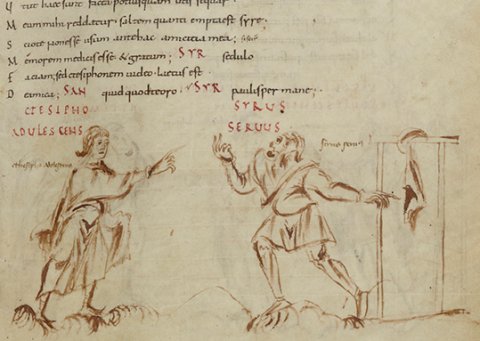 U tut haec sunt facta potiusquam lites sequar
M eum mihi reddatur saltem quanti emptaest syre.
S ciote nonesse usum antehac amicitia mea;
M emorem me esse & gratum; SYR sedulo
F aciam; sed ctesiphonem video. Laetus est.
D eamica; SAN quid quodteoro; SYR paulisper mane;
CTESIPHO SYRUS
ADULESCENS SERUUS